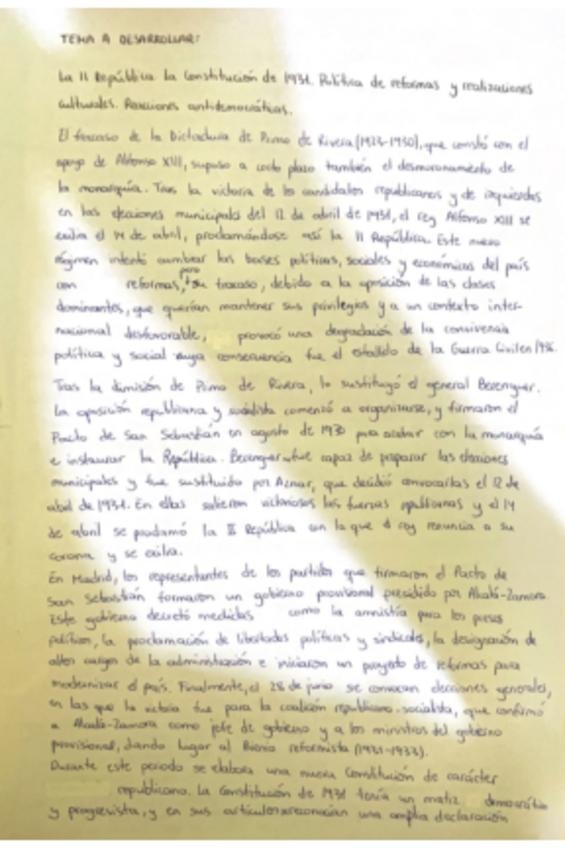 TEMA A DESARROLLAR:
La II República. La Constitución de 1931. Política de reformas y realizaciones
culturales. Reacciones antidemocráticas.
El fracaso de la Dictadura de Primo de Rivera (1923-1930), que contó con el
apoyo de Alfonso XIII, supuso a corto plazo también el desmoronamiento de
la monarquía. Tras la victoria de los candidatos republicanos y de izquierdas
en las elecciones municipales del 12 de abril de 1931, el rey Alfonso XIII se
exilia el 14 de abril, proclamándose así la II República. Este nuevo
régimen intentó cambiar las bases políticas, sociales y económicas del país
con reformas, pero su fracaso, debido a la oposición de las clases
dominantes, que querían mantener sus privilegios y a un contexto inter-
nacional desfavorable, provocó una degradación de la convivencia
política y social cuya consecuencia fue el estallido de la Guerra Civil en 1936.
Tras la dimisión de Primo de Rivera, lo sustituyó el general Berenguer.
La oposición republicana y socialista comenzó a organizarse, y firmaron el
Pacto de San Sebastián en agosto de 1930 para acabar con la monarquía
e instaurar la República. Berenguer fue capaz de preparar las elecciones
municipales y fue sustituido por Aznar, que decidió convocarlas el 12 de
abril de 1931. En ellas salieron victoriosas las fuerzas republicanas y el 14
de abril se proclamó la II República con lo que el rey renuncia a su
corona y se exilia.
En Madrid, los representantes de los partidos que firmaron el Pacto de
San Sebastián formaron un gobierno provisional presidido por Alcalá-Zamora.
Este gobierno decretó medidas como la amnistía para los presos
políticos, la proclamación de libertades políticas y sindicales, la designación de
altos cargos de la administración e iniciaron un proyecto de reformas para
modernizar el país. Finalmente, el 28 de junio se convocan elecciones generales,
en las que la victoria fue para la coalición republicano-socialista, que confirmó
a Alcalá-Zamora como jefe de gobierno y a los ministros del gobierno
provisional, dando lugar al Bienio reformista (1931-1933).
Durante este periodo se elabora una nueva Constitución de carácter
republicano. La Constitución de 1931 tenía un matiz democrático
y progresista, y en sus artículos reconocían una amplia declaración